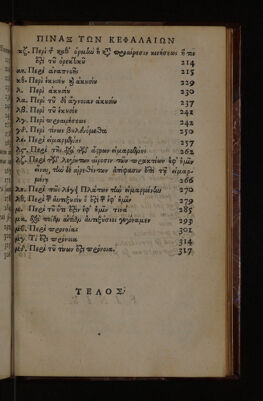 ΠΙΝΑΞ ΤΩΝ ΚΕΦΑΛΑΙΩΝ
κζ. Περὶ τ καθ' ὁρμὴν ἢ προαίρεσιν κινήσεως ἥ τις
ἐστὶ τοῦ ὀρεκτικοῦ 214
κη. Περὶ ἀναπνοῆς 215
κθ. Περὶ ἑκουσίου καὶ ἀκουσίου 229
λ. Περὶ ἀκουσίου 230
λα. Περὶ τοῦ δι' ἄγνοιαν ἀκουσίου 237
λβ. Περὶ τοῦ ἑκουσίου 241
λγ. Περὶ προαιρέσεως 242
λδ. Περὶ τίνων βουλευόμεθα 250
λε. Περὶ εἱμαρμένης 257
λς. Περὶ τῆς διὰ τῶν ἄστρων εἱμαρμένης 262
λζ. Περὶ τ λεγόντων αἵρεσιν τῶν πρακτέων ἐφ' ἡμῖν,
τὴν δὲ τῶν αἱρεθέντων ἀπόβασιν ἐπὶ τῇ εἱμαρ-
μένῃ 266
λη. Περὶ πῶς λέγει Πλάτων τὴν εἱμαρμένην 270
λθ. Περὶ τ αὐτεξουσίου ὅ ἐστι τ ἐφ' ἡμῖν 279
μ. Περὶ τοῦ ὅτι ἐστὶν ἐφ' ἡμῖν τινα 285
μα. διὰ ποίαν αἰτίαν αὐτεξούσιοι γεγόναμεν 293
μβ. Περὶ προνοίας 301
μγ. Τί ἐστι πρόνοια 314
μδ. Περὶ τοῦ τίνων ἐστὶ πρόνοια. 317
ΤΕΛΟΣ